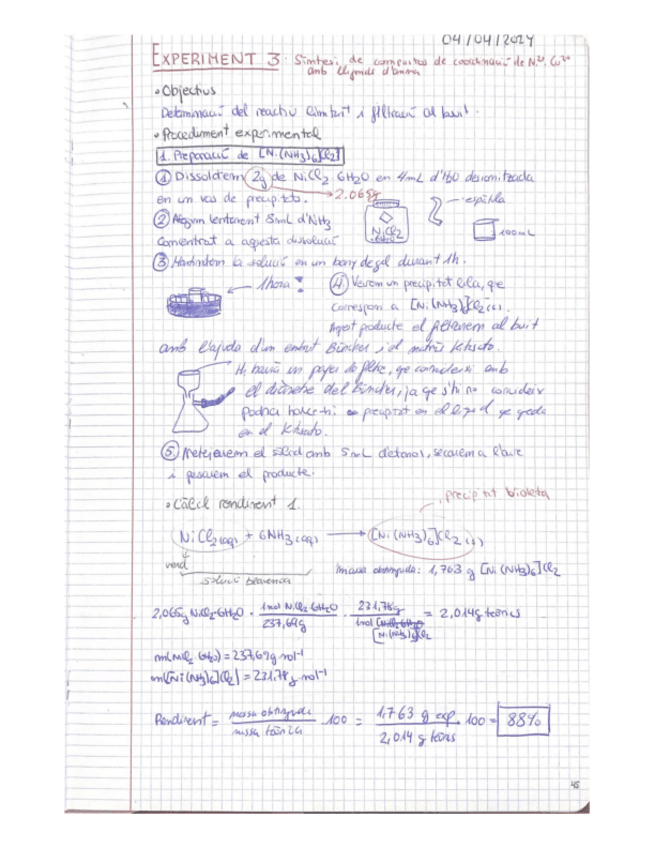 04/04/2024
EXPERIMENT 3: Síntesi de compostos de coordinació de Ni²⁺, Cu²⁺
amb lligands d'amina
• Objectius
Determinació del reactiu limitant i filtració al buit.
• Procediment experimental
1. Preparació de [Ni(NH3)6]Cl2
① Dissoldrem 2g de NiCl2·6H2O en 4mL d'H2O desionitzada
en un vas de precipitats.
2.065g
espàtula
② Afegim lentament 5mL d'NH3
concentrat a aquesta dissolució
NiCl2
·6H2O
100mL
③ Mantindrem la solució en un bany de gel durant 1h.
1hora!
④ Veurem un precipitat lila, que
correspon a [Ni(NH3)6]Cl2(s).
Aquest producte el filtrarem al buit
amb l'ajuda d'un embut Büncher i el matràs Kitasato.
Hi haurà un paper de filtre, que coincideixi amb
el diàmetre del büncher, ja que s'hi no coincideix
podria haver-hi precipitat en el líquid que queda
en el Kitasato.
⑤ Netejarem el sòlid amb 5mL d'etanol, secarem a l'aire
i pesarem el producte.
• Càlcul rendiment 1.
precipitat violeta
NiCl2(aq) + 6NH3(aq) → [Ni(NH3)6]Cl2(s)
verd
solució blavenca
massa obtinguda: 1,763 g [Ni(NH3)6]Cl2
2,065g NiCl2·6H2O · 1mol NiCl2·6H2O / 237,69g · 231,78g / 1mol [Ni(NH3)6]Cl2 = 2,014g teòrics
m(NiCl2·6H2O) = 237,69g·mol⁻¹
m([Ni(NH3)6]Cl2) = 231,78g·mol⁻¹
Rendiment = massa obtinguda / massa teòrica · 100 = 1,763 g exp. / 2,014 g teòrics · 100 = 88%
45